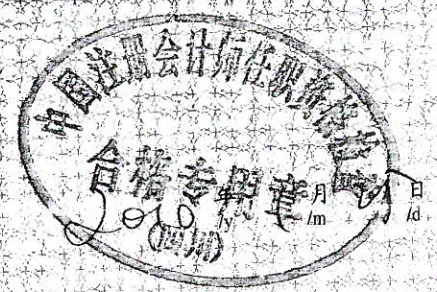 中国注册会计师任职资格检查
合格专用章
2010 年 月 日
/y /m /d
(四川)